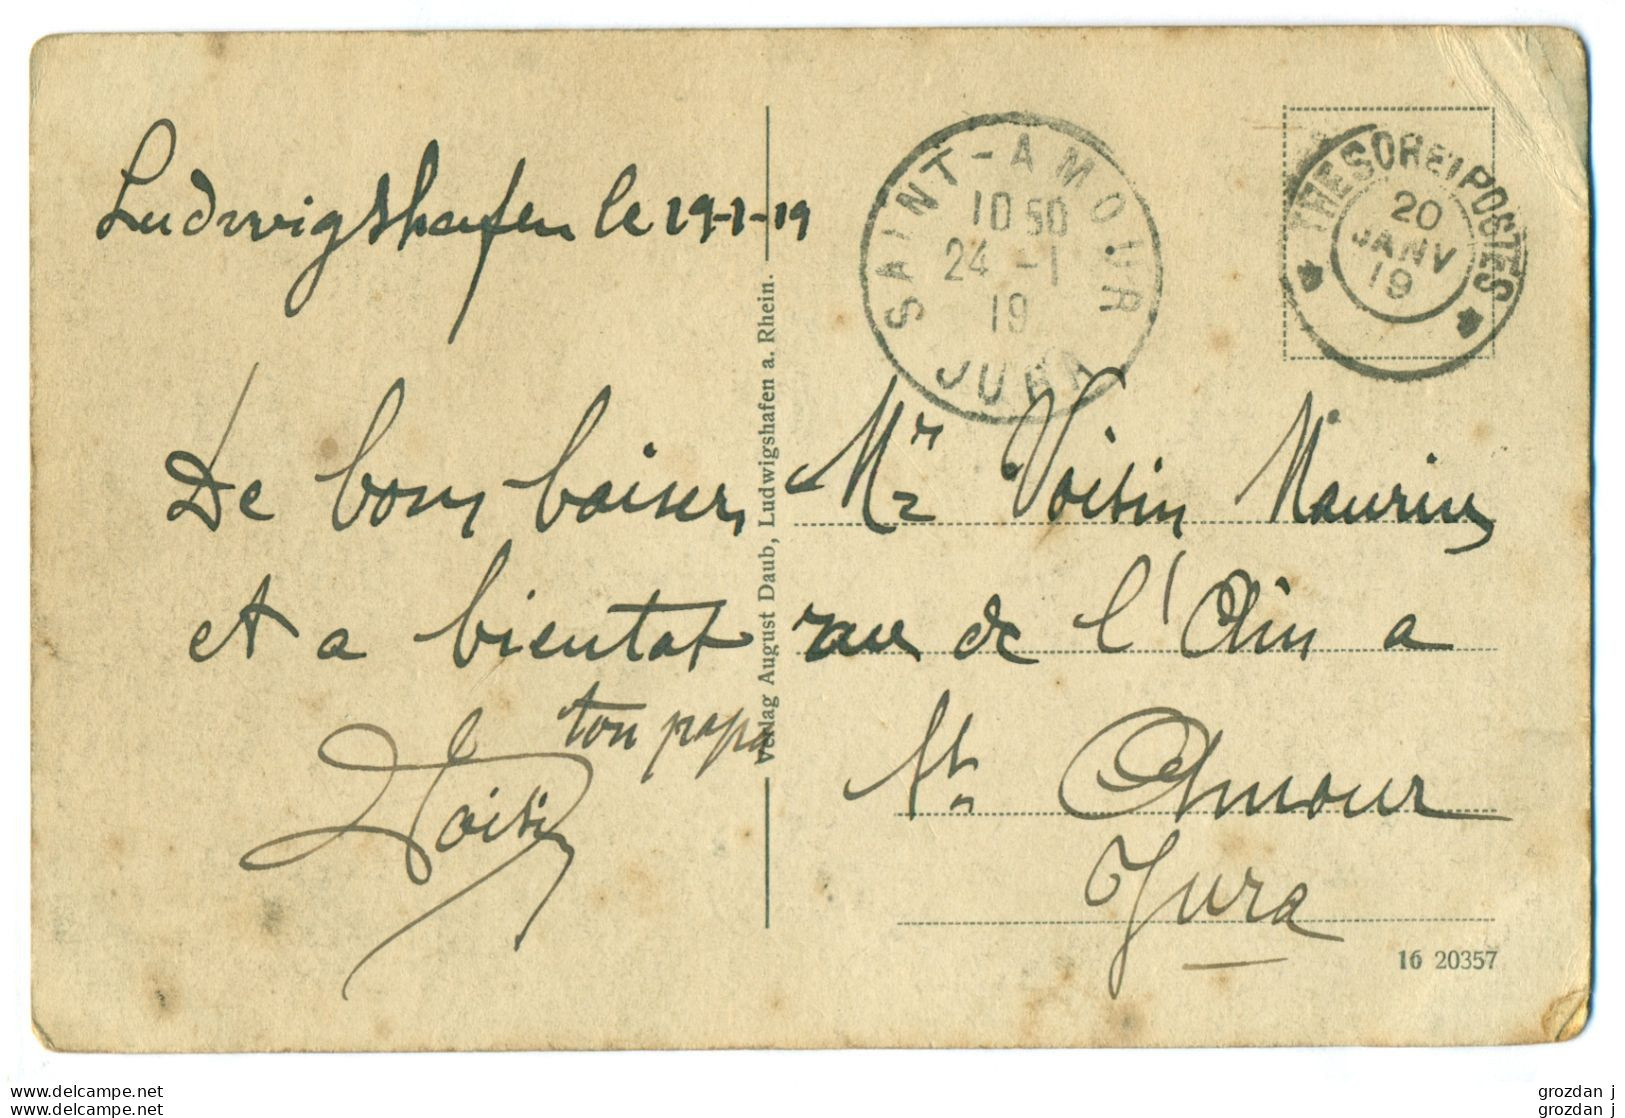 Ludwigshafen le 19-1-19
De bons baisers
et a bientat
ton papa
Voisin
Verlag August Daub, Ludwigshafen a. Rhein.
SAINT-AMOUR
10 50
24 -1
19
JURA
TRESOR ET POSTES
20
JANV
19
Mr Voisin Maurice
rue de l'Ain a
St Amour
Jura
16 20357
www.delcampe.net
www.delcampe.net
grozdan j
grozdan j